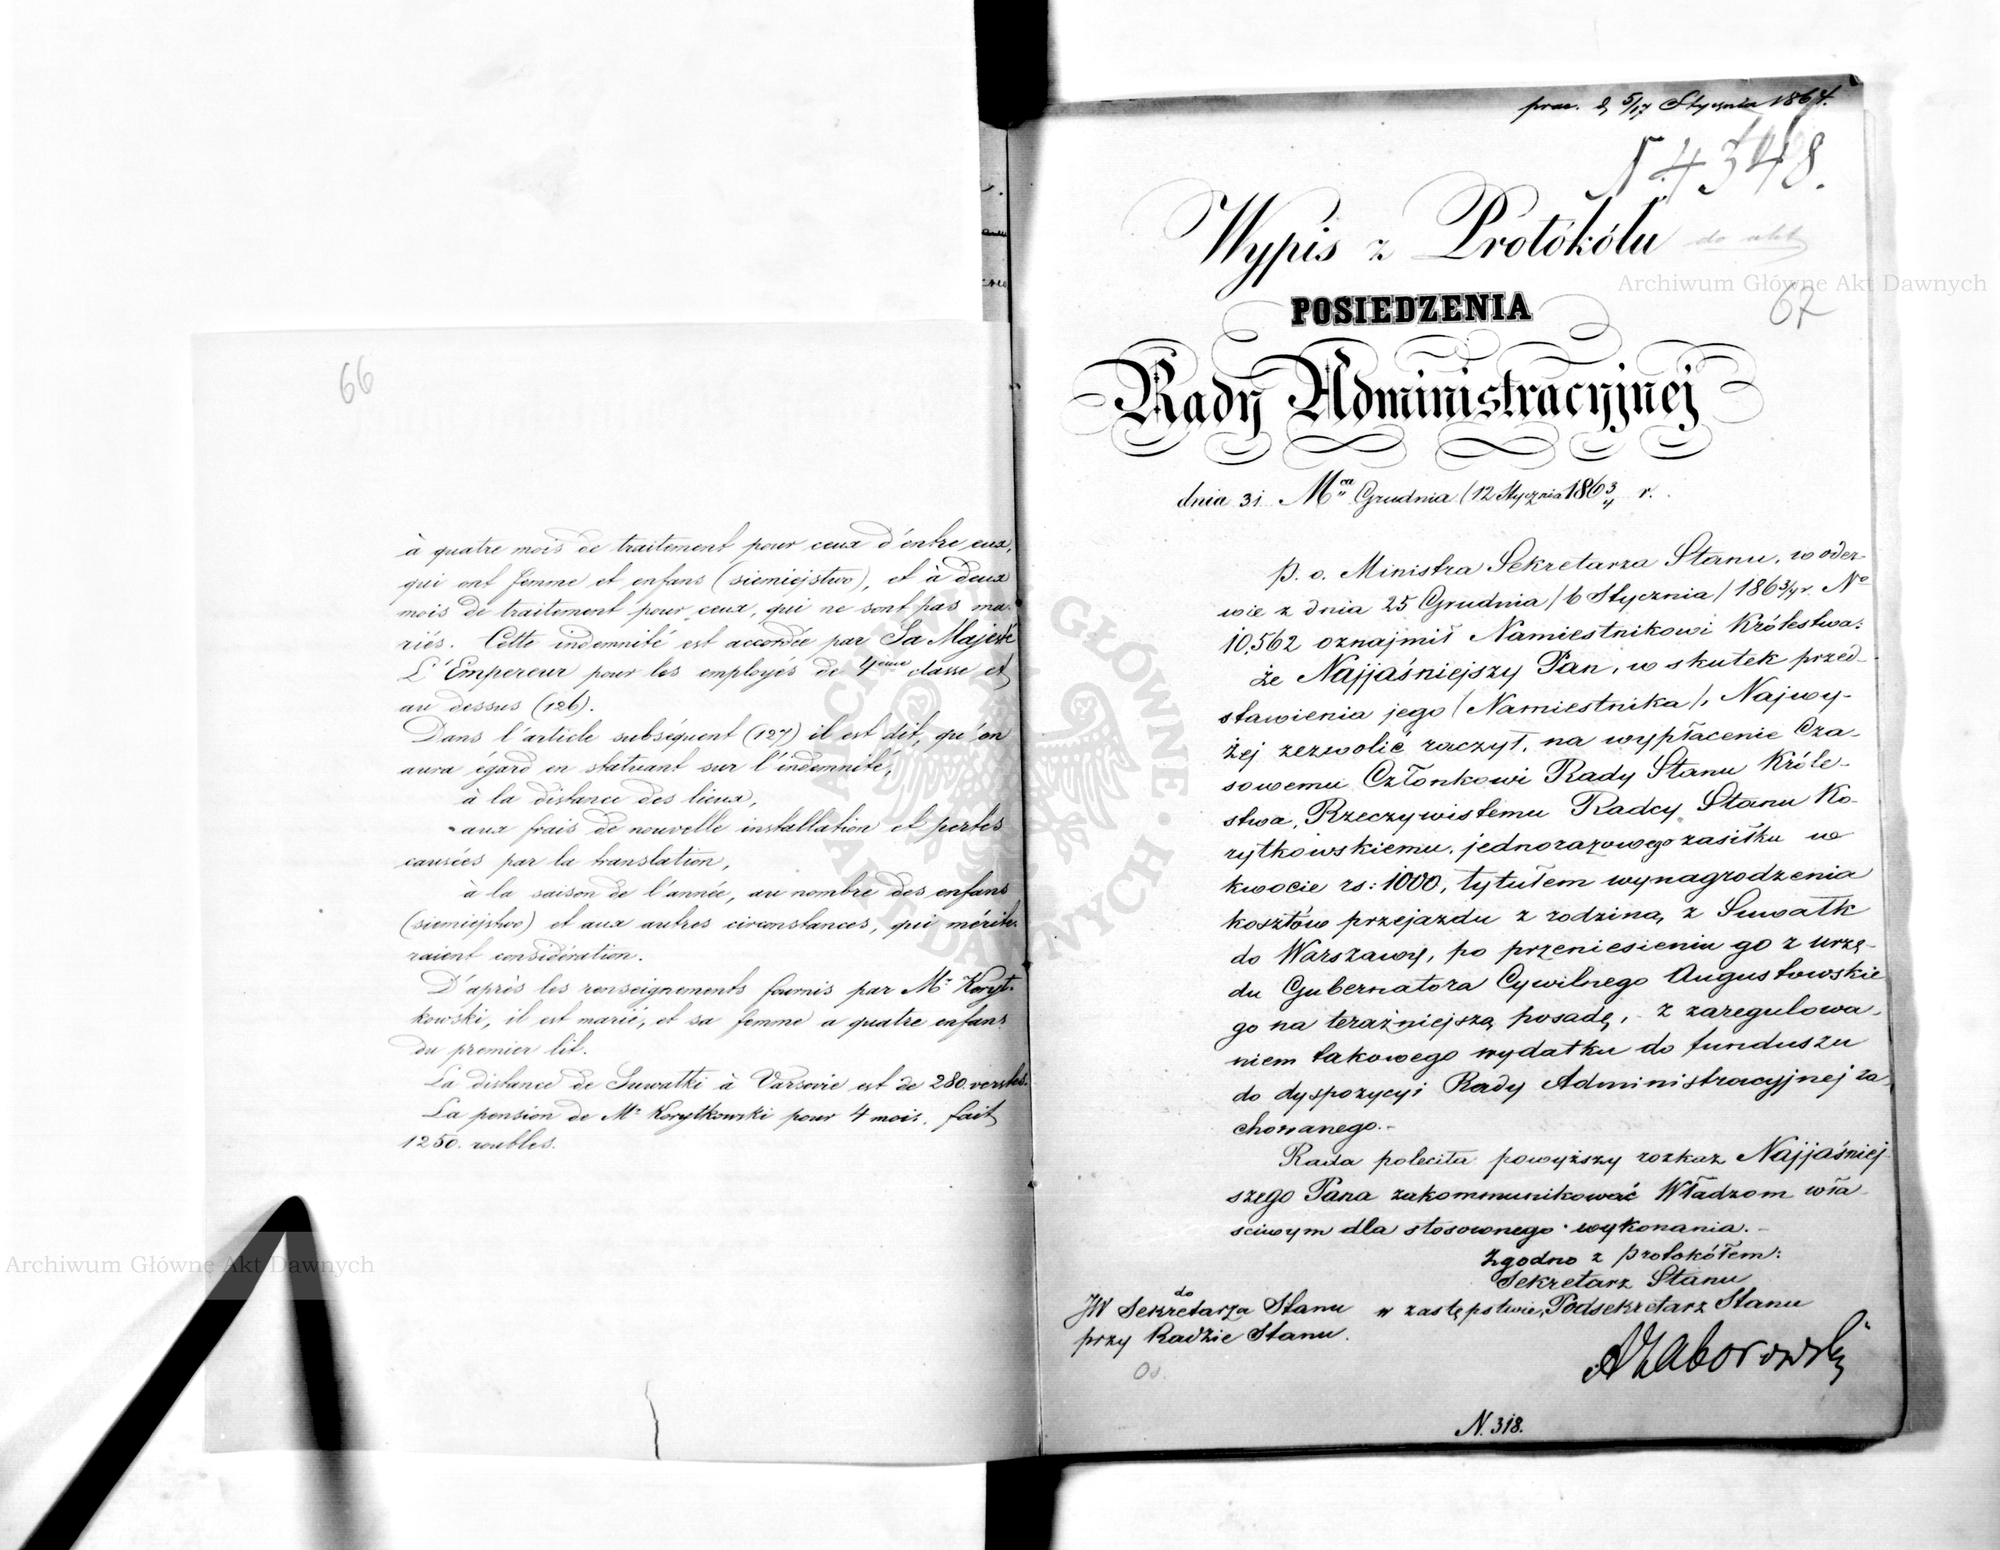 66
à quatre mois de traitement pour ceux d'entre eux,
qui ont femme et enfans (siemiejstwo), et à deux
mois de traitement pour ceux, qui ne sont pas ma-
riés. Cette indemnité est accordée par Sa Majesté
L'Empereur pour les employés de 4ème classe et
au dessus (126).
Dans l'article subséquent (127) il est dit, qu'on
aura égard en statuant sur l'indemnité,
à la distance des lieux,
aux frais de nouvelle installation et pertes
causées par la translation,
à la saison de l'année, au nombre des enfans
(siemiejstwo) et aux autres circonstances, qui mérite-
raient considération.
D'après les renseignements fournis par Mr Koryt-
kowski, il est marié, et sa femme a quatre enfans
du premier lit.
La distance de Suwałki à Varsovie est de 280 verstes.
La pension de Mr Korytkowski pour 4 mois, fait
1250. roubles.
prez. d. 5/17 Stycznia 1864.
N 4348.
Wypis z Protokółu
do akt
Archiwum Główne Akt Dawnych
67
POSIEDZENIA
Rady Administracyjnej
dnia 31 Mca Grudnia (12 Stycznia 1863/4 r.
p. o. Ministra Sekretarza Stanu, w odez-
wie z dnia 25 Grudnia /6 Stycznia/ 1863/4 r. No
10,562 oznajmił Namiestnikowi Królestwa:
że Najjaśniejszy Pan, w skutek przed-
stawienia jego /Namiestnika/, Najwy-
żej zezwolić raczył, na wypłacenie Cza-
sowemu Członkowi Rady Stanu Króle-
stwa, Rzeczywistemu Radcy Stanu Ko-
rytkowskiemu, jednorazowego zasiłku w
kwocie rs: 1000, tytułem wynagrodzenia
kosztów przejazdu z rodziną, z Suwałk
do Warszawy, po przeniesieniu go z urzę-
du Gubernatora Cywilnego Augustowskie
go na teraźniejszą posadę, z zaregulowa-
niem takowego wydatku do funduszu
do dyspozycyi Rady Administracyjnej za-
chowanego.-
Rada poleciła powyższy rozkaz Najjaśniej-
szego Pana zakommunikować Władzom wła-
ściwym dla stosownego wykonania.-
Zgodno z Protokółem:
Sekretarz Stanu
w zastępstwie, Podsekretarz Stanu
do
JW Sekretarza Stanu
przy Radzie Stanu.
AZaborowski
N. 318.
Archiwum Główne Akt Dawnych
ARCHIWUM GŁÓWNE AKT DAWNYCH